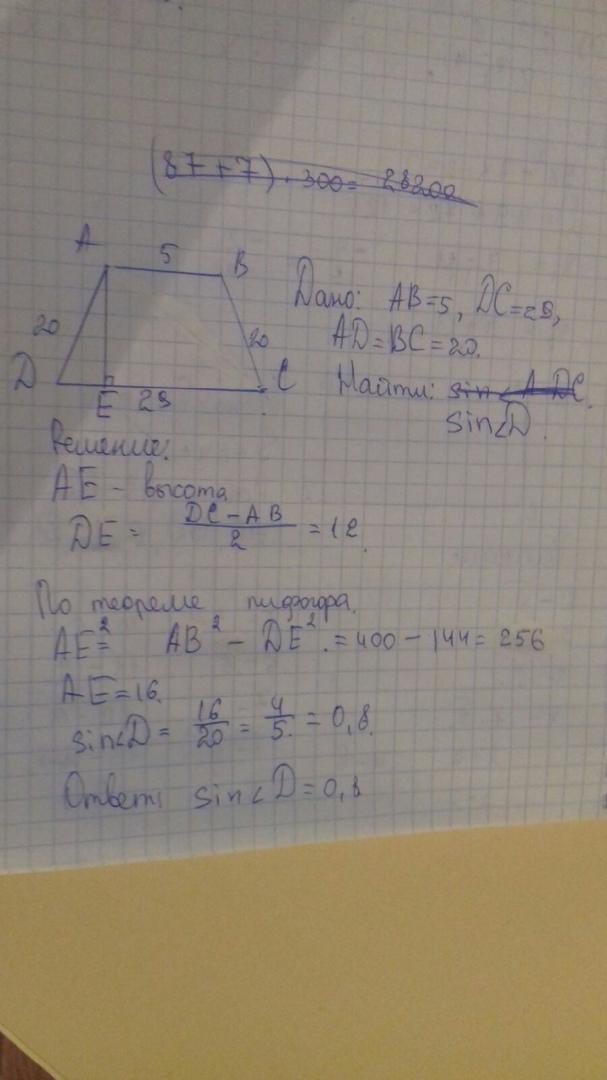 (87+7)·300= 28200
A 5 B
20 20
D E 29 C
Дано: AB=5, DC=29,
AD=BC=20.
Найти: sin∠ADC.
sin∠D.
Решение:
AE – высота
DE = DC-AB/2 = 12.
По теореме пифагора.
AE²= AB² – DE². = 400 – 144 = 256
AE=16.
sin∠D = 16/20 = 4/5. = 0,8.
Ответ: sin∠D=0,8